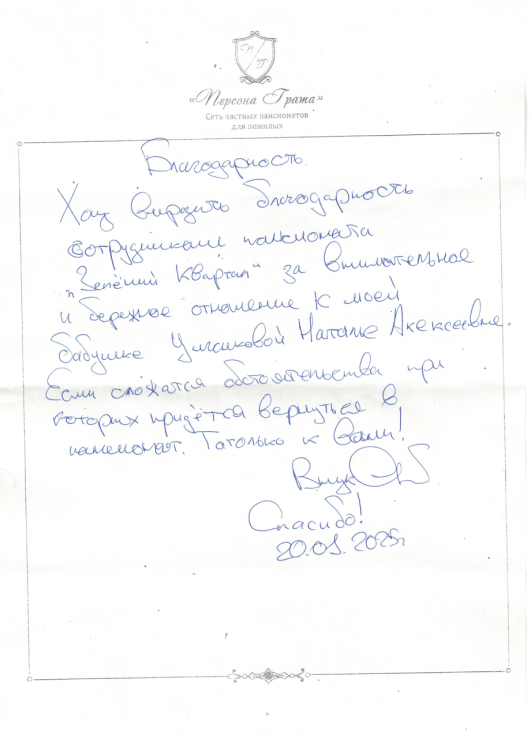 П Г
«Персона Грата»
Сеть частных пансионатов
для пожилых
Благодарность.
Хочу выразить благодарность
сотрудникам пансионата
"Зелёный Квартал" за внимательное
и бережное отношение к моей
бабушке Наталье Алексеевне.
Если сложатся обстоятельства при
которых придётся вернуться в
пансионат. То только к Вам!
Внук
Спасибо!
2025г